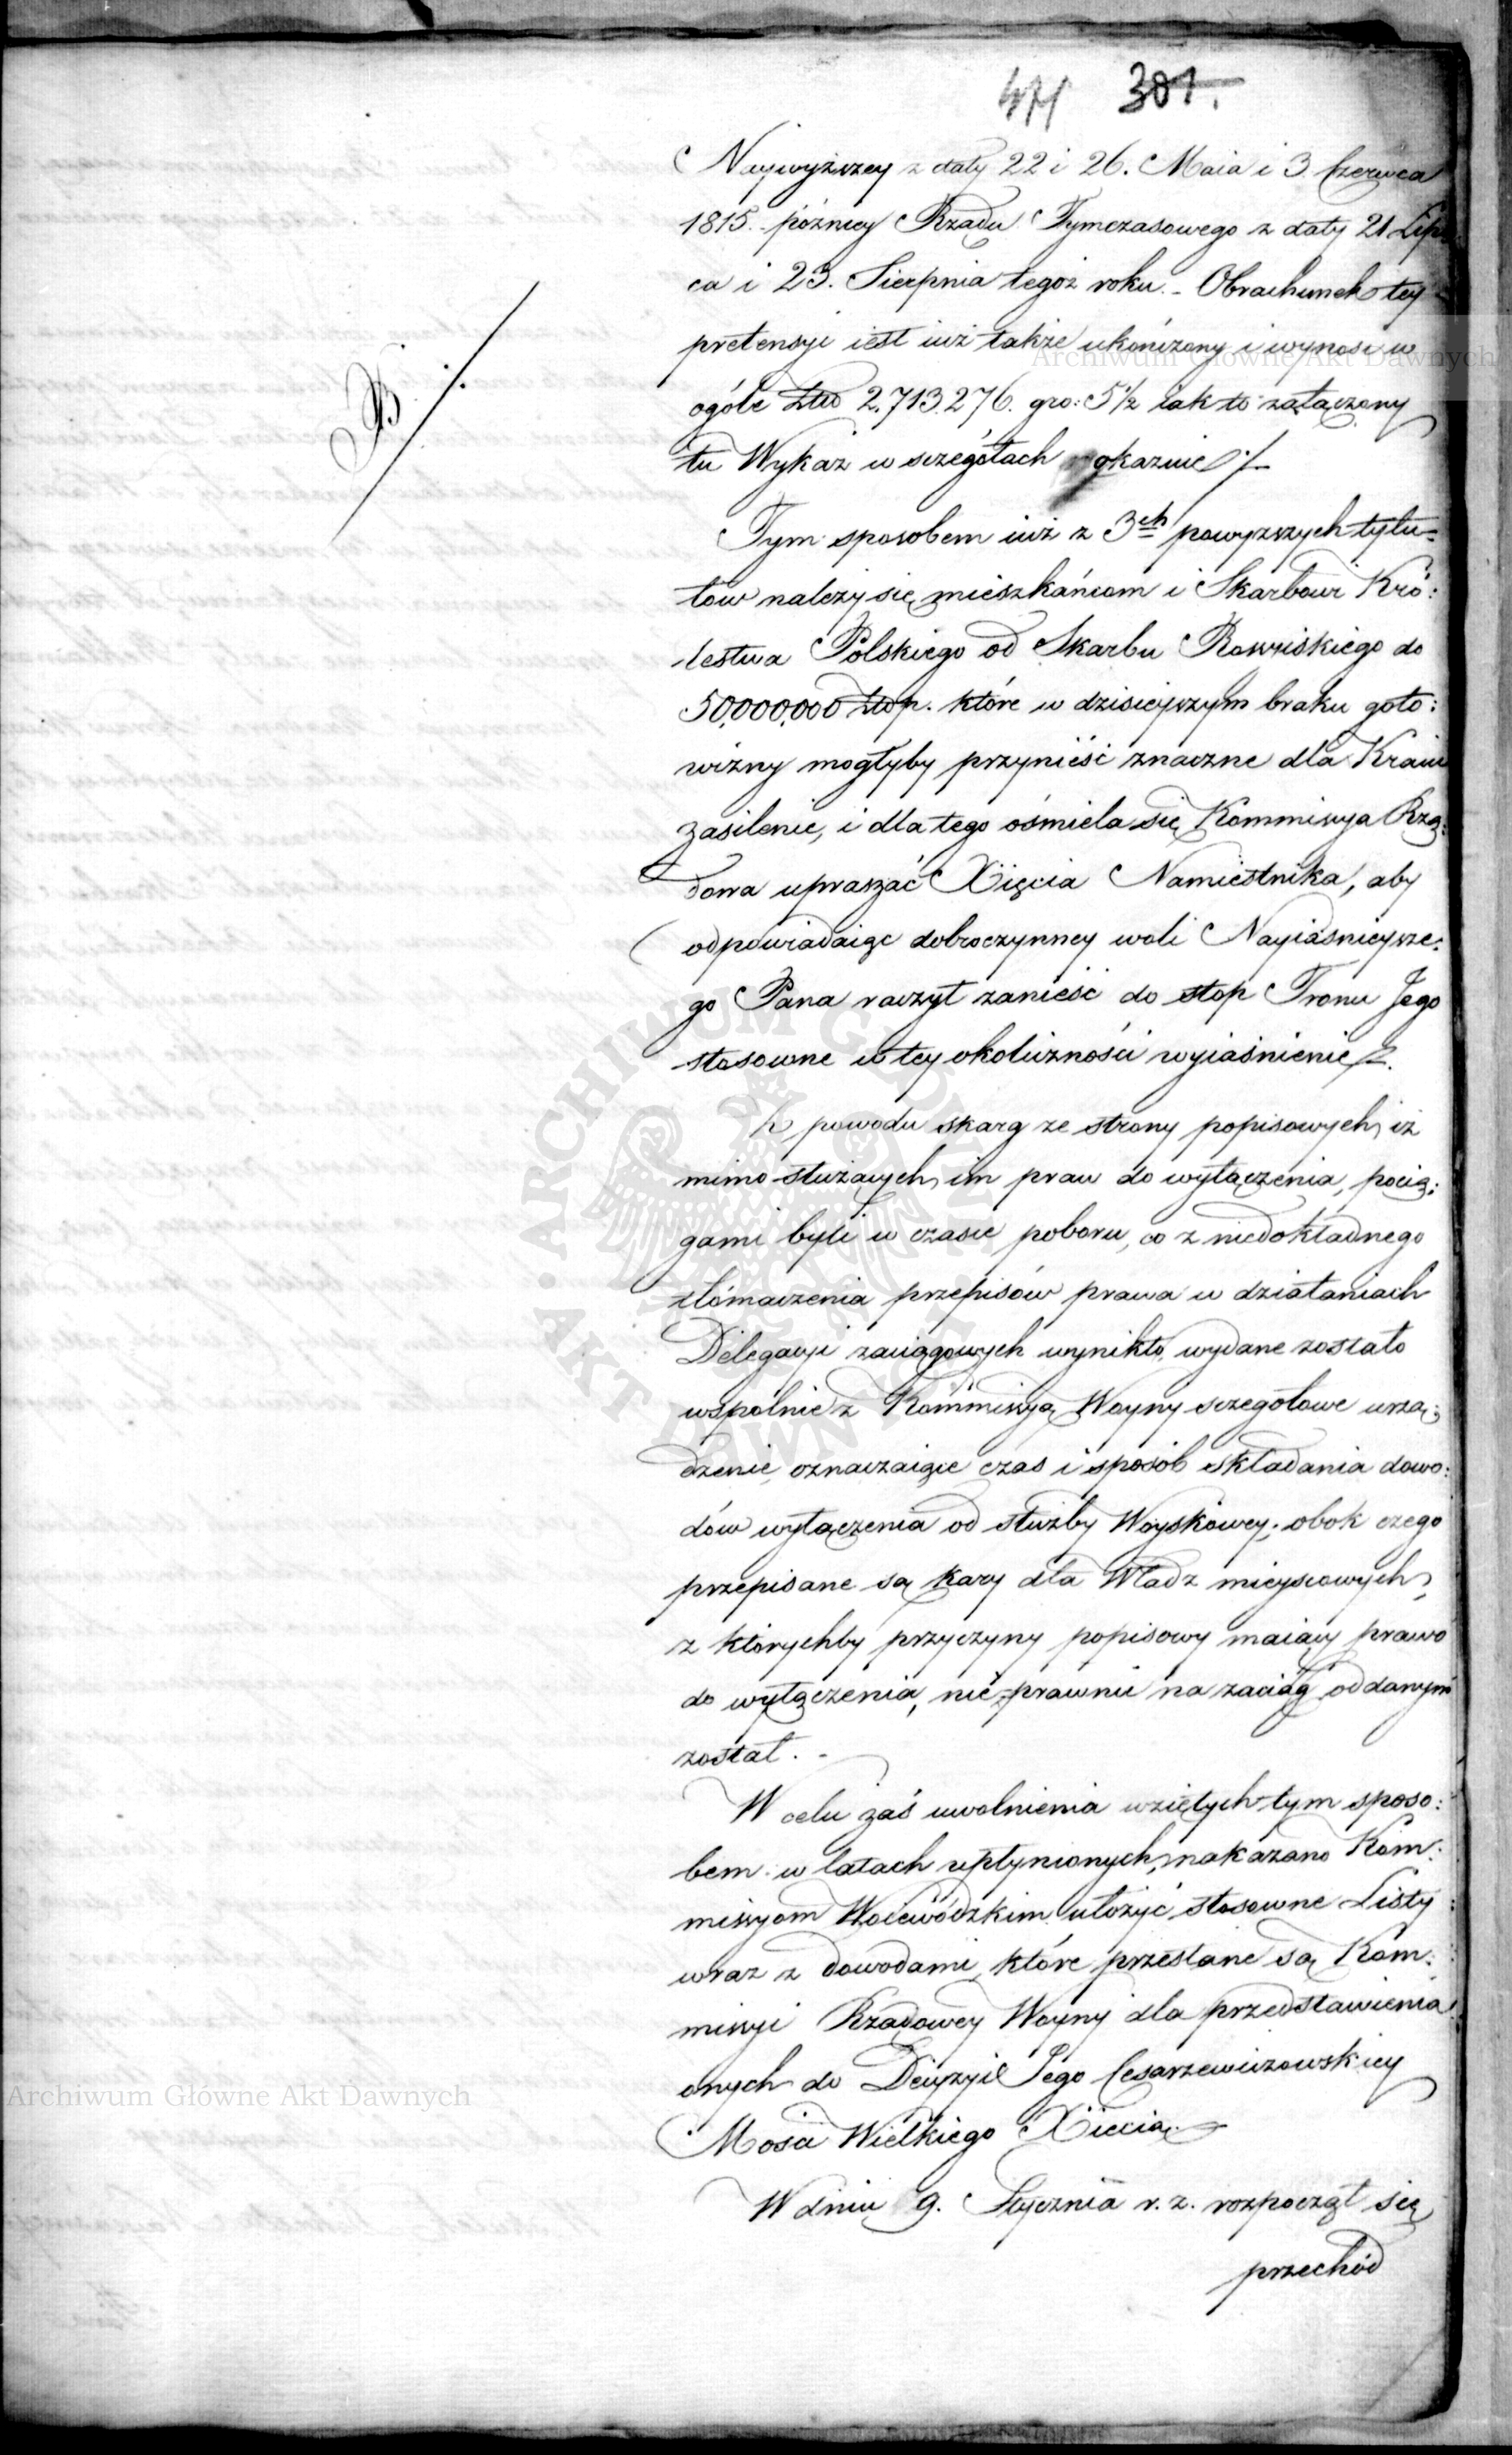 471 381.
Naywyższey z daty 22 i 26. Maia i 3 Czerwca
1815. poźniey Rządu Tymczasowego z daty 21 Lip
ca i 23. Sierpnia tegoż roku. - Obrachunek tey
pretensyi iest iuż także ukończony i wynosi w
ogóle Złło 2,713,276. gro: 5 1/2 iak to załączony
B./.
tu Wykaz w sczegółach okazuie ./.
Tym sposobem iuż z 3ch powyższych tytu=
łow należy się mieszkańcom i Skarbowi Kró:
lestwa Polskiego od Skarbu Rossyiskiego do
50,000,000 Złłop. które w dzisieyszym braku goto:
wizny mogłyby przynieść znaczne dla Kraiu
zasilenie, i dla tego ośmiela się Kommissya Rzą:
dowa upraszać Xięcia Namiestnika, aby
odpowiadaiąc dobroczynney woli Nayiaśnieysze:
go Pana raczył zanieść do stop Tronu Jego
stosowne w tey okoliczności wyiaśnienie ./.
Z powodu skarg ze strony popisowych, iż
mimo służących im praw do wyłączenia, pocią:
gami byli w czasie poboru, co z niedokładnego
tłómaczenia przepisów prawa w działaniach
Delegacyi zaciągowych wynikło, wydane zostało
wspólnie z Kommissyą Woyny sczegółowe urzą:
dzenie, oznaczaiące czas i sposób składania dowo:
dów wyłączenia od służby Woyskowey; obok czego
przepisane są kary dla Władz mieyscowych,
z którychby przyczyny popisowy maiący prawo
do wyłączenia, nieprawnie na zaciąg oddanym
został. -
W celu zaś uwolnienia wziętych tym sposo:
bem w latach upłynionych, nakazano Kom:
missyom Woiewódzkim ułożyć stosowne Listy
wraz z dowodami, które przesłane są Kom:
missyi Rządowey Woyny dla przedstawienia
onych do Decyzyi Jego Cesarzewiczowskiey
Mości Wielkiego Xięcia.
W dniu 9. Stycznia r. z. rozpoczął się
przechód
Archiwum Główne Akt Dawnych
Archiwum Główne Akt Dawnych
ARCHIWUM GŁÓWNE AKT DAWNYCH